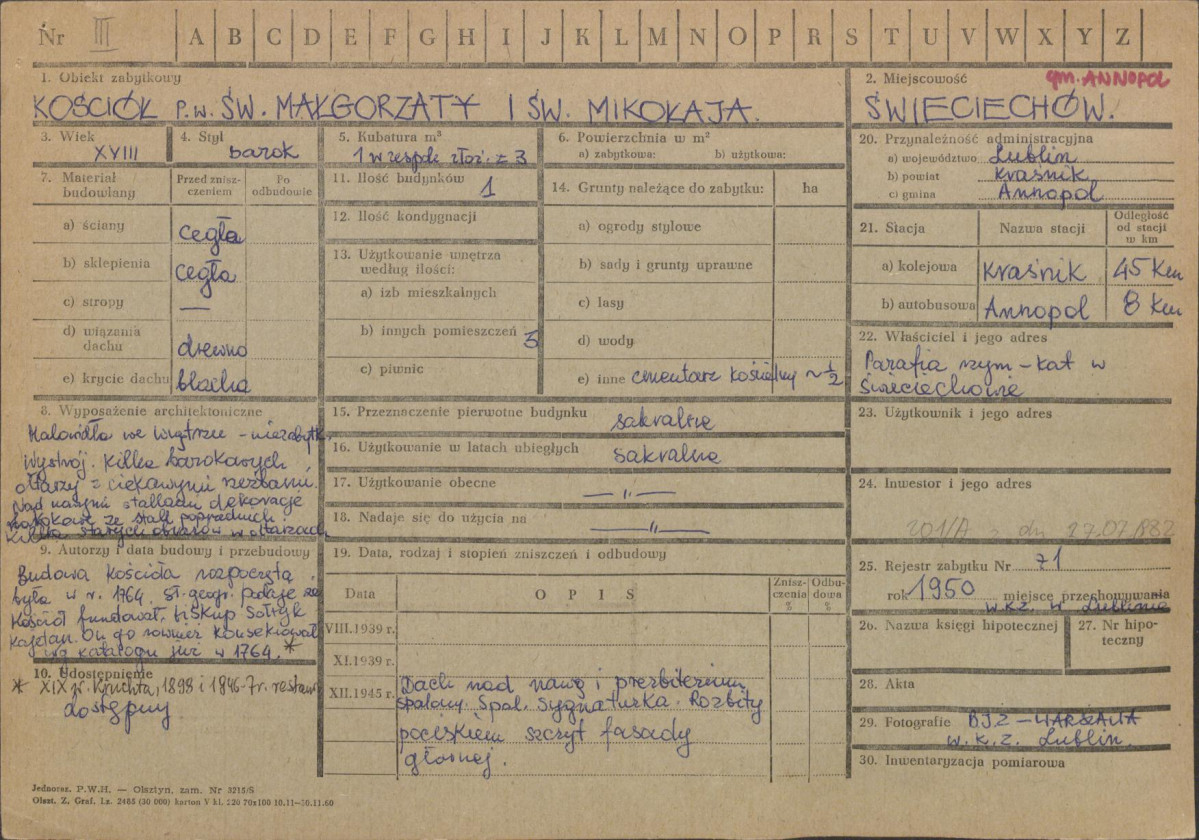 Nr III A B C D E F G H I J K L M N O P R S T U V W X Y Z
1. Obiekt zabytkowy
KOŚCIÓŁ P.W. ŚW. MAŁGORZATY I ŚW. MIKOŁAJA.
2. Miejscowość gm. ANNOPOL
ŚWIECIECHÓW.
3. Wiek
XVIII
4. Styl
barok
5. Kubatura m³
1 w zespole złoż. z 3
6. Powierzchnia w m²
a) zabytkowa: b) użytkowa:
20. Przynależność administracyjna
a) województwo Lublin
b) powiat Kraśnik
c) gmina Annopol
7. Materiał budowlany
Przed zniszczeniem
Po odbudowie
a) ściany cegła
b) sklepienia cegła
c) stropy —
d) wiązania dachu drewno
e) krycie dachu blacha
11. Ilość budynków 1
12. Ilość kondygnacji
13. Użytkowanie wnętrza
według ilości:
a) izb mieszkalnych
b) innych pomieszczeń 3
c) piwnic
14. Grunty należące do zabytku: ha
a) ogrody stylowe
b) sady i grunty uprawne
c) lasy
d) wody
e) inne cmentarz kościelny ~ ½
21. Stacja Nazwa stacji Odległość od stacji w km
a) kolejowa Kraśnik 45 Km
b) autobusowa Annopol 8 Km
22. Właściciel i jego adres
Parafia rzym-kat w
Świeciechowie
8. Wyposażenie architektoniczne
Malowidła we wnętrzu – niezabytk.
Wystrój. Kilka barokowych
ołtarzy z ciekawymi rzeźbami.
Nad naszymi stallami dekoracje
barokowe ze stall poprzednich.
Kilka starych obrazów w ołtarzach
15. Przeznaczenie pierwotne budynku sakralne
16. Użytkowanie w latach ubiegłych sakralne
17. Użytkowanie obecne — „ —
18. Nadaje się do użycia na — „ —
23. Użytkownik i jego adres
24. Inwestor i jego adres
201/A z dn 27.07.1882
25. Rejestr zabytku Nr 71
rok 1950 miejsce przechowywania
W.K.Z. w Lublinie
9. Autorzy i data budowy i przebudowy
Budowa Kościoła rozpoczęta
była w r. 1764. Sł. geogr. podaje że
kościół fundował biskup Sołtyk
Kajetan. On go również konsekrował
wg katalogu już w 1764. *
10. Udostępnienie
* XIX w. Kruchta, 1898 i 1946-7r. restaur.
dostępny
19. Data, rodzaj i stopień zniszczeń i odbudowy
Data OPIS Zniszczenia % Odbudowa %
VIII.1939 r.
XI.1939 r.
XII.1945 r. Dach nad nawą i prezbiterium
spalony. Spal. Sygnaturka. Rozbity
pociskiem szczyt fasady
głównej.
26. Nazwa księgi hipotecznej
27. Nr hipoteczny
28. Akta
29. Fotografie BJZ – WARSZAWA
W.K.Z. Lublin.
30. Inwentaryzacja pomiarowa
Jednoraz. P.W.H. — Olsztyn, zam. Nr 3215/S
Olszt. Z. Graf. Lz. 2465 (30 000) karton V kl. 220 70x100 10.11—30.11.60